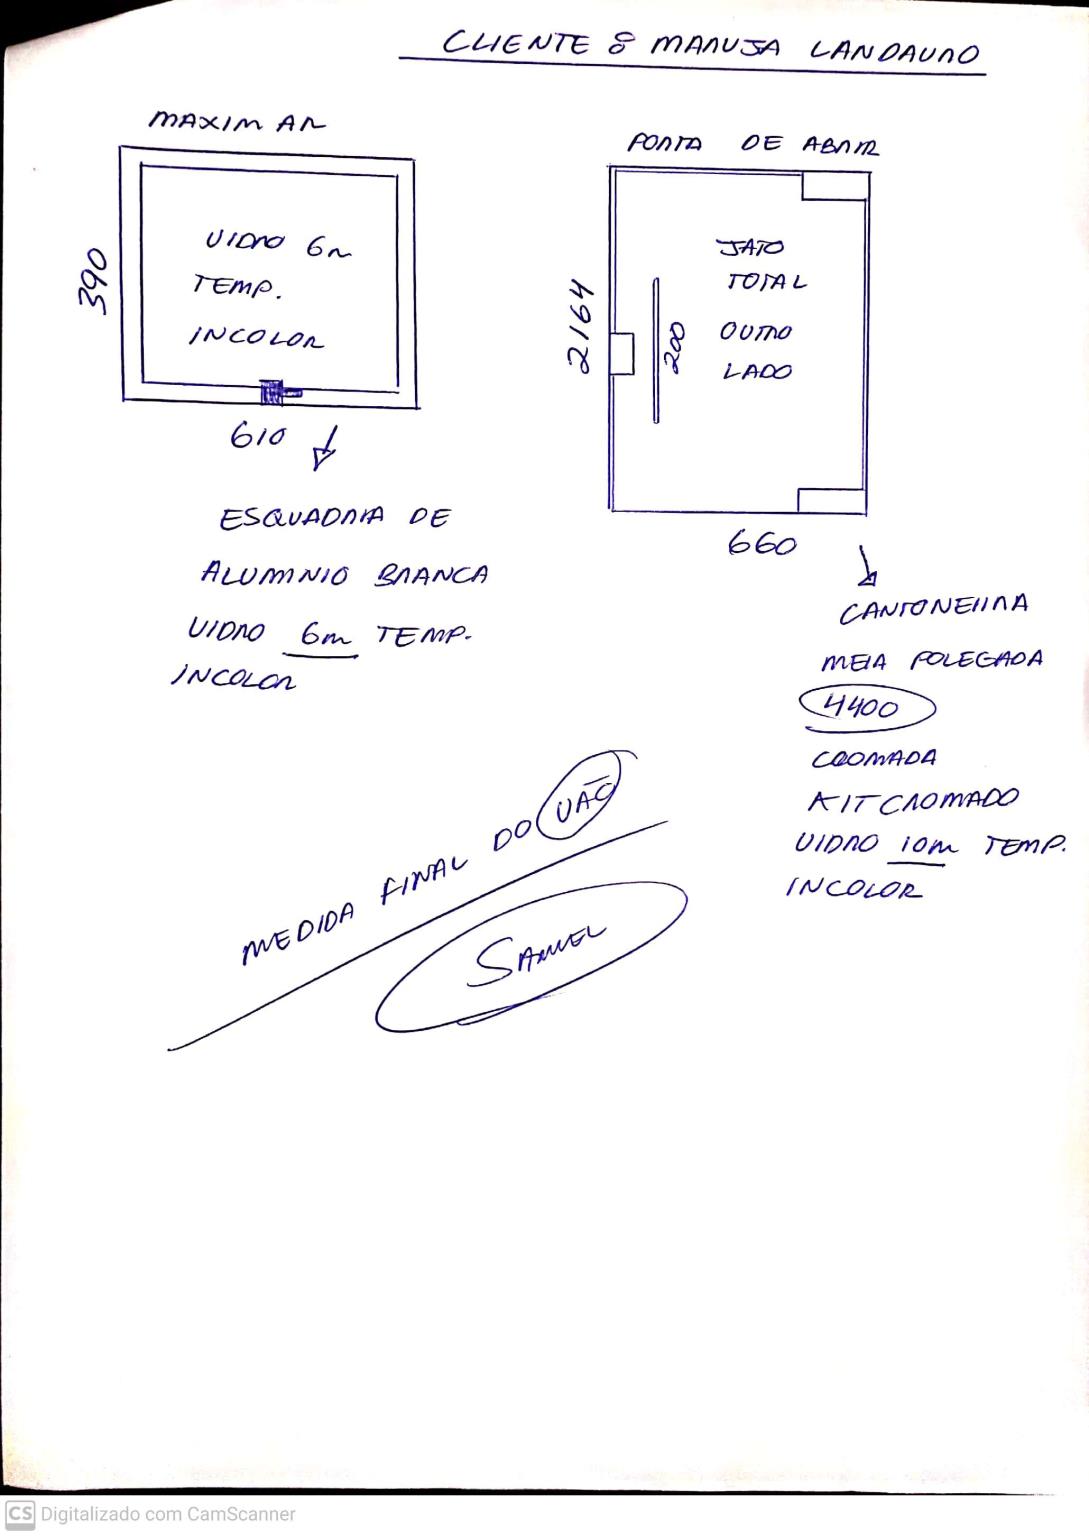 CLIENTE : MARUSA LANDAURO
MAXIM AR
390
VIDRO 6m
TEMP.
INCOLOR
610
ESQUADRIA DE
ALUMINIO BRANCA
VIDRO 6m TEMP.
INCOLOR
PORTA DE ABRIR
2164
200
JATO
TOTAL
OUTRO
LADO
660
CANTONEIIRA
MEIA POLEGADA
4400
CROMADA
KIT CROMADO
VIDRO 10m TEMP.
INCOLOR
MEDIDA FINAL DO VÃO
SAMUEL
CS Digitalizado com CamScanner